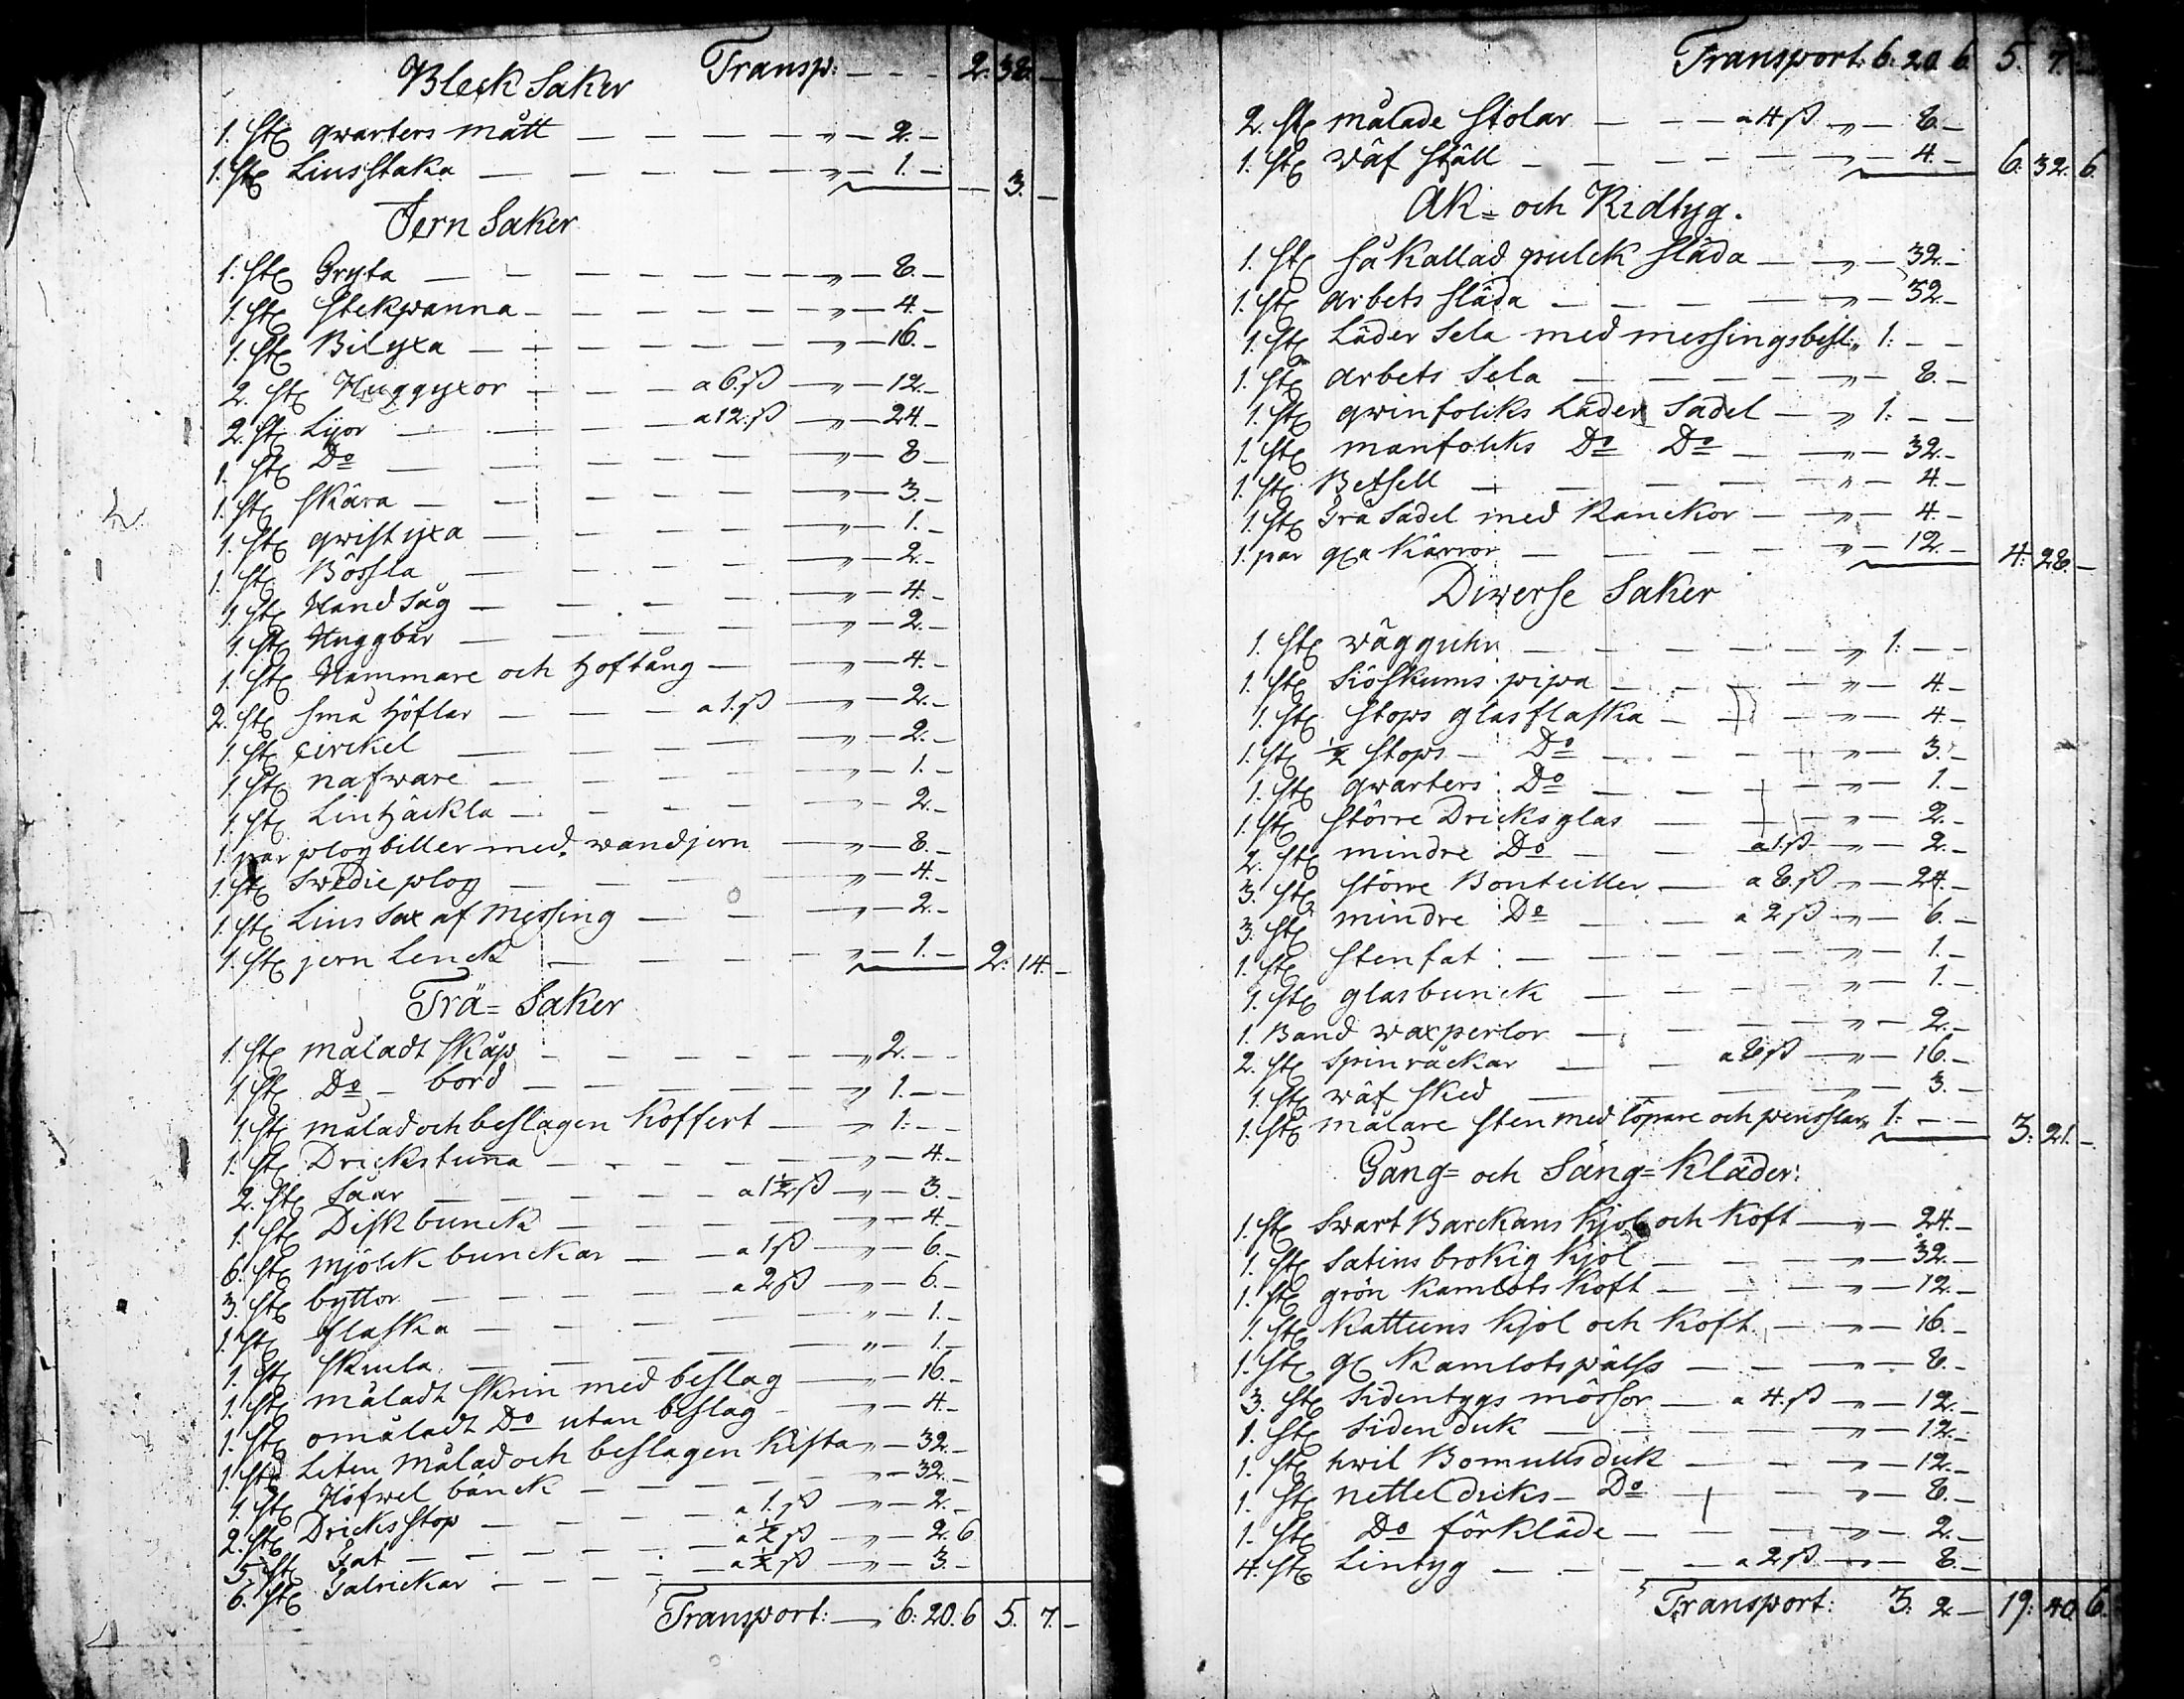 Bleck Saker Transp: — — — 2. 38. —
1. st qwarters mått — — — — „ — 2. —
1. st Liusstaka — — — — — „ — 1. — — 3. —
Jern Saker
1. st Gryta — — — — — — „ — 8. —
1. st stekpanna — — — — — „ — 4. —
1. st Bilyxa — — — — — — „ — 16. —
2. st Huggyxor — — — a 6. ß — „ — 12. —
2. st Lijor — — — — a 12. ß — „ — 24. —
1. st Do — — — — — — „ — 8 —
1. st skära — — — — — — „ — 3. —
1. st qwistyxa — — — — — „ — 1. —
1. st Bössla — — — — — „ — 2. —
1. st Hand såg — — — — — „ — 4. —
1. st Huggbår — — — — — „ — 2. —
1. st Hammare och Hoftång — — „ — 4. —
2. st små Höflar — — — a 1. ß — „ — 2. —
1. st cirkel — — — — — „ — 2. —
1. st nafware — — — — — „ — 1. —
1. st Lin Häckla — — — — — „ — 2. —
1. par plogbiller med wandjern — „ — 8. —
1. st Swedie plog — — — — „ — 4. —
1. st Lius Sax af Messing — — — „ — 2. —
1. st jern Lenck — — — — „ — 1. — 2: 14. —
Trä= Saker
1. st måladt skåp — — — — — „ 2. — —
1. st Do — bord — — — — — „ 1. — —
1. st målad och beslagen koffert — „ 1: — —
1. st Drickstunna — — — — — „ — 4. —
2. st Såar — — — — — a 1½ ß — „ — 3. —
1. st Diskbunck — — — — — „ — 4. —
6. st mjölckbunckar — — a 1 ß — „ — 6. —
3. st byttor — — — — a 2 ß — „ — 6. —
1. st flaska — — — — — „ — 1. —
1. st skula — — — — — „ — 1. —
1. st måladt skrin med beslag — „ — 16. —
1. st omåladt Do utan beslag — „ — 4. —
1. st Liten Målad och beslagen kista „ — 32. —
1. st Höfwel bänck — — — — „ — 32. —
2. st Dricksstop — — — a 1. ß — „ — 2. —
5. st Fat — — — — — a ½ ß — „ — 2. 6
6. st Talrickar — — — — a ½ ß — „ — 3. —
Transport: — „ 6: 20. 6 5. 7. —
Transport: 6: 20. 6. 5. 7. —
2. st målade stolar — — — a 4 ß „ — 8. —
1. st wäf ställ — — — — — „ — 4. — 6: 32. 6
Åk= och Ridtyg.
1. st så kallad pulck släda — „ — 32. —
1. st arbets släda — — — — „ — 32. —
1. st Läder Sela med messingsbesl: „ 1: — —
1. st arbets Sela — — — — „ — 8. —
1. st qwinfolcks Läder Sadel — „ 1: — —
1. st manfolcks Do Do — „ — 32. —
1. st Betsell — — — — — „ — 4. —
1. st Grå Sadel med Ranckor — „ — 4. —
1. par gla Kärror — — — — „ — 12. — 4. 28. —
Diwerse Saker
1. st wägguhr — — — — — „ 1: — —
1. st Siöskums pipa — — — — „ — 4. —
1. st stops glasflaska — — — „ — 4. —
1. st ½ stops — Do — — — — „ — 3. —
1. st qwarters Do — — — — „ — 1. —
1. st större Dricksglas — — — „ — 2. —
2. st mindre Do — — a 1. ß — „ — 2. —
3. st större Bonteiller — a 8. ß — „ — 24. —
3. st mindre Do — — a 2 ß — „ — 6. —
1. st stenfat — — — — — „ — 1. —
1. st glasbunck — — — — „ — 1. —
1. Band waxperlor — — — — „ — 2. —
2. st Spinråckar — — a 8 ß — „ — 16. —
1. st wäf sked — — — — — „ — 3. —
1. st målare sten med löpare och pensslar „ 1: — — 3: 21. —
Gång= och Säng=Kläder:
1. st Swart Barckans Kjol och koft — „ — 24. —
1. st Satins brokig kjol — — — „ — 32. —
1. st grön kamlots koft — — — „ — 12. —
1. st Kattuns kjol och koft — „ — 16. —
1. st gl Kamlotspälss — — — „ — 8. —
3. st Sidentygs mössor — a 4. ß — „ — 12. —
1. st Siden duk — — — — — „ — 12. —
1. st hwit Bomullsduk — — — „ — 12. —
1. st nettelducks — Do — — „ — 8. —
1. st Do förkläde — — — „ — 2. —
4. st Lintyg — — — — a 2 ß — „ — 8. —
Transport: 3: 2 — 19: 40. 6.